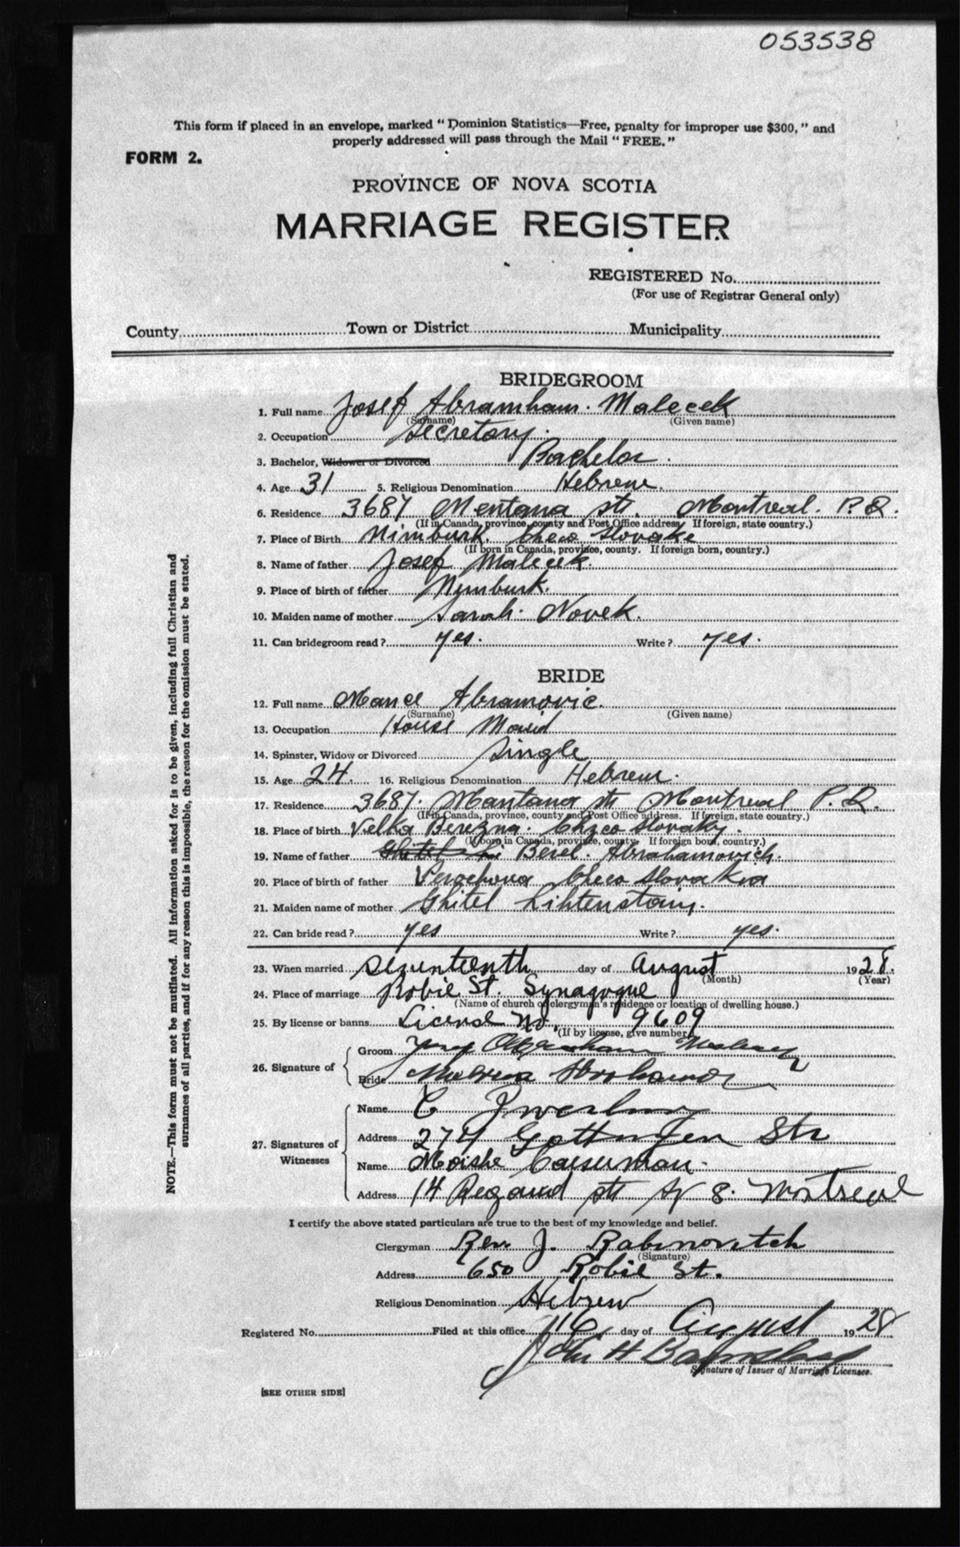 053538
This form if placed in an envelope, marked "Dominion Statistics—Free, penalty for improper use $300," and
properly addressed will pass through the Mail "FREE."
FORM 2.
PROVINCE OF NOVA SCOTIA
MARRIAGE REGISTER
REGISTERED No.
(For use of Registrar General only)
County Town or District Municipality
BRIDEGROOM
1. Full name Josef Abramham Malecek
(Surname) (Given name)
2. Occupation Secretary.
3. Bachelor, Widower or Divorced Bachelor.
4. Age 31 5. Religious Denomination Hebrew.
6. Residence 3687 Mentana str. Montreal. P.Q.
(If in Canada, province, county and Post Office address. If foreign, state country.)
7. Place of Birth Nimburk. Checo Slovake
(If born in Canada, province, county. If foreign born, country.)
8. Name of father Josef Malecek.
9. Place of birth of father Nimburk.
10. Maiden name of mother Sarah Novek.
11. Can bridegroom read? yes. Write? yes.
BRIDE
12. Full name Abramovic.
(Surname) (Given name)
13. Occupation House Maid
14. Spinster, Widow or Divorced Single
15. Age 24. 16. Religious Denomination Hebrew.
17. Residence 3687. Mantana str Montreal P.Q.
(If in Canada, province, county and Post Office address. If foreign, state country.)
18. Place of birth Velka Berezna. Checo Slovaky.
(If born in Canada, province, county. If foreign born, country.)
19. Name of father Berel. Abrahamovich.
20. Place of birth of father Checo Slovakia
21. Maiden name of mother Ghitel Lihtenstain.
22. Can bride read? yes Write? yes.
23. When married Sevunteenth day of August 1928.
(Month) (Year)
24. Place of marriage Robie St. Synagogue
(Name of church or clergyman's residence or location of dwelling house.)
25. By license or banns License No. 9609
(If by license, give number)
26. Signature of
Groom Abraham
Bride
27. Signatures of Witnesses
Name C
Address 274 Gottingen Str
Name Moishe Caiserman.
Address 14 str Montreal
I certify the above stated particulars are true to the best of my knowledge and belief.
Clergyman Rev J. Rabinovitch
(Signature)
Address 650 Robie St.
Religious Denomination Hebrew
Registered No. Filed at this office 16 day of August 1928
John H
Signature of Issuer of Marriage Licenses.
[SEE OTHER SIDE]
NOTE.—This form must not be mutilated. All information asked for is to be given, including full Christian and
surnames of all parties, and if for any reason this is impossible, the reason for the omission must be stated.